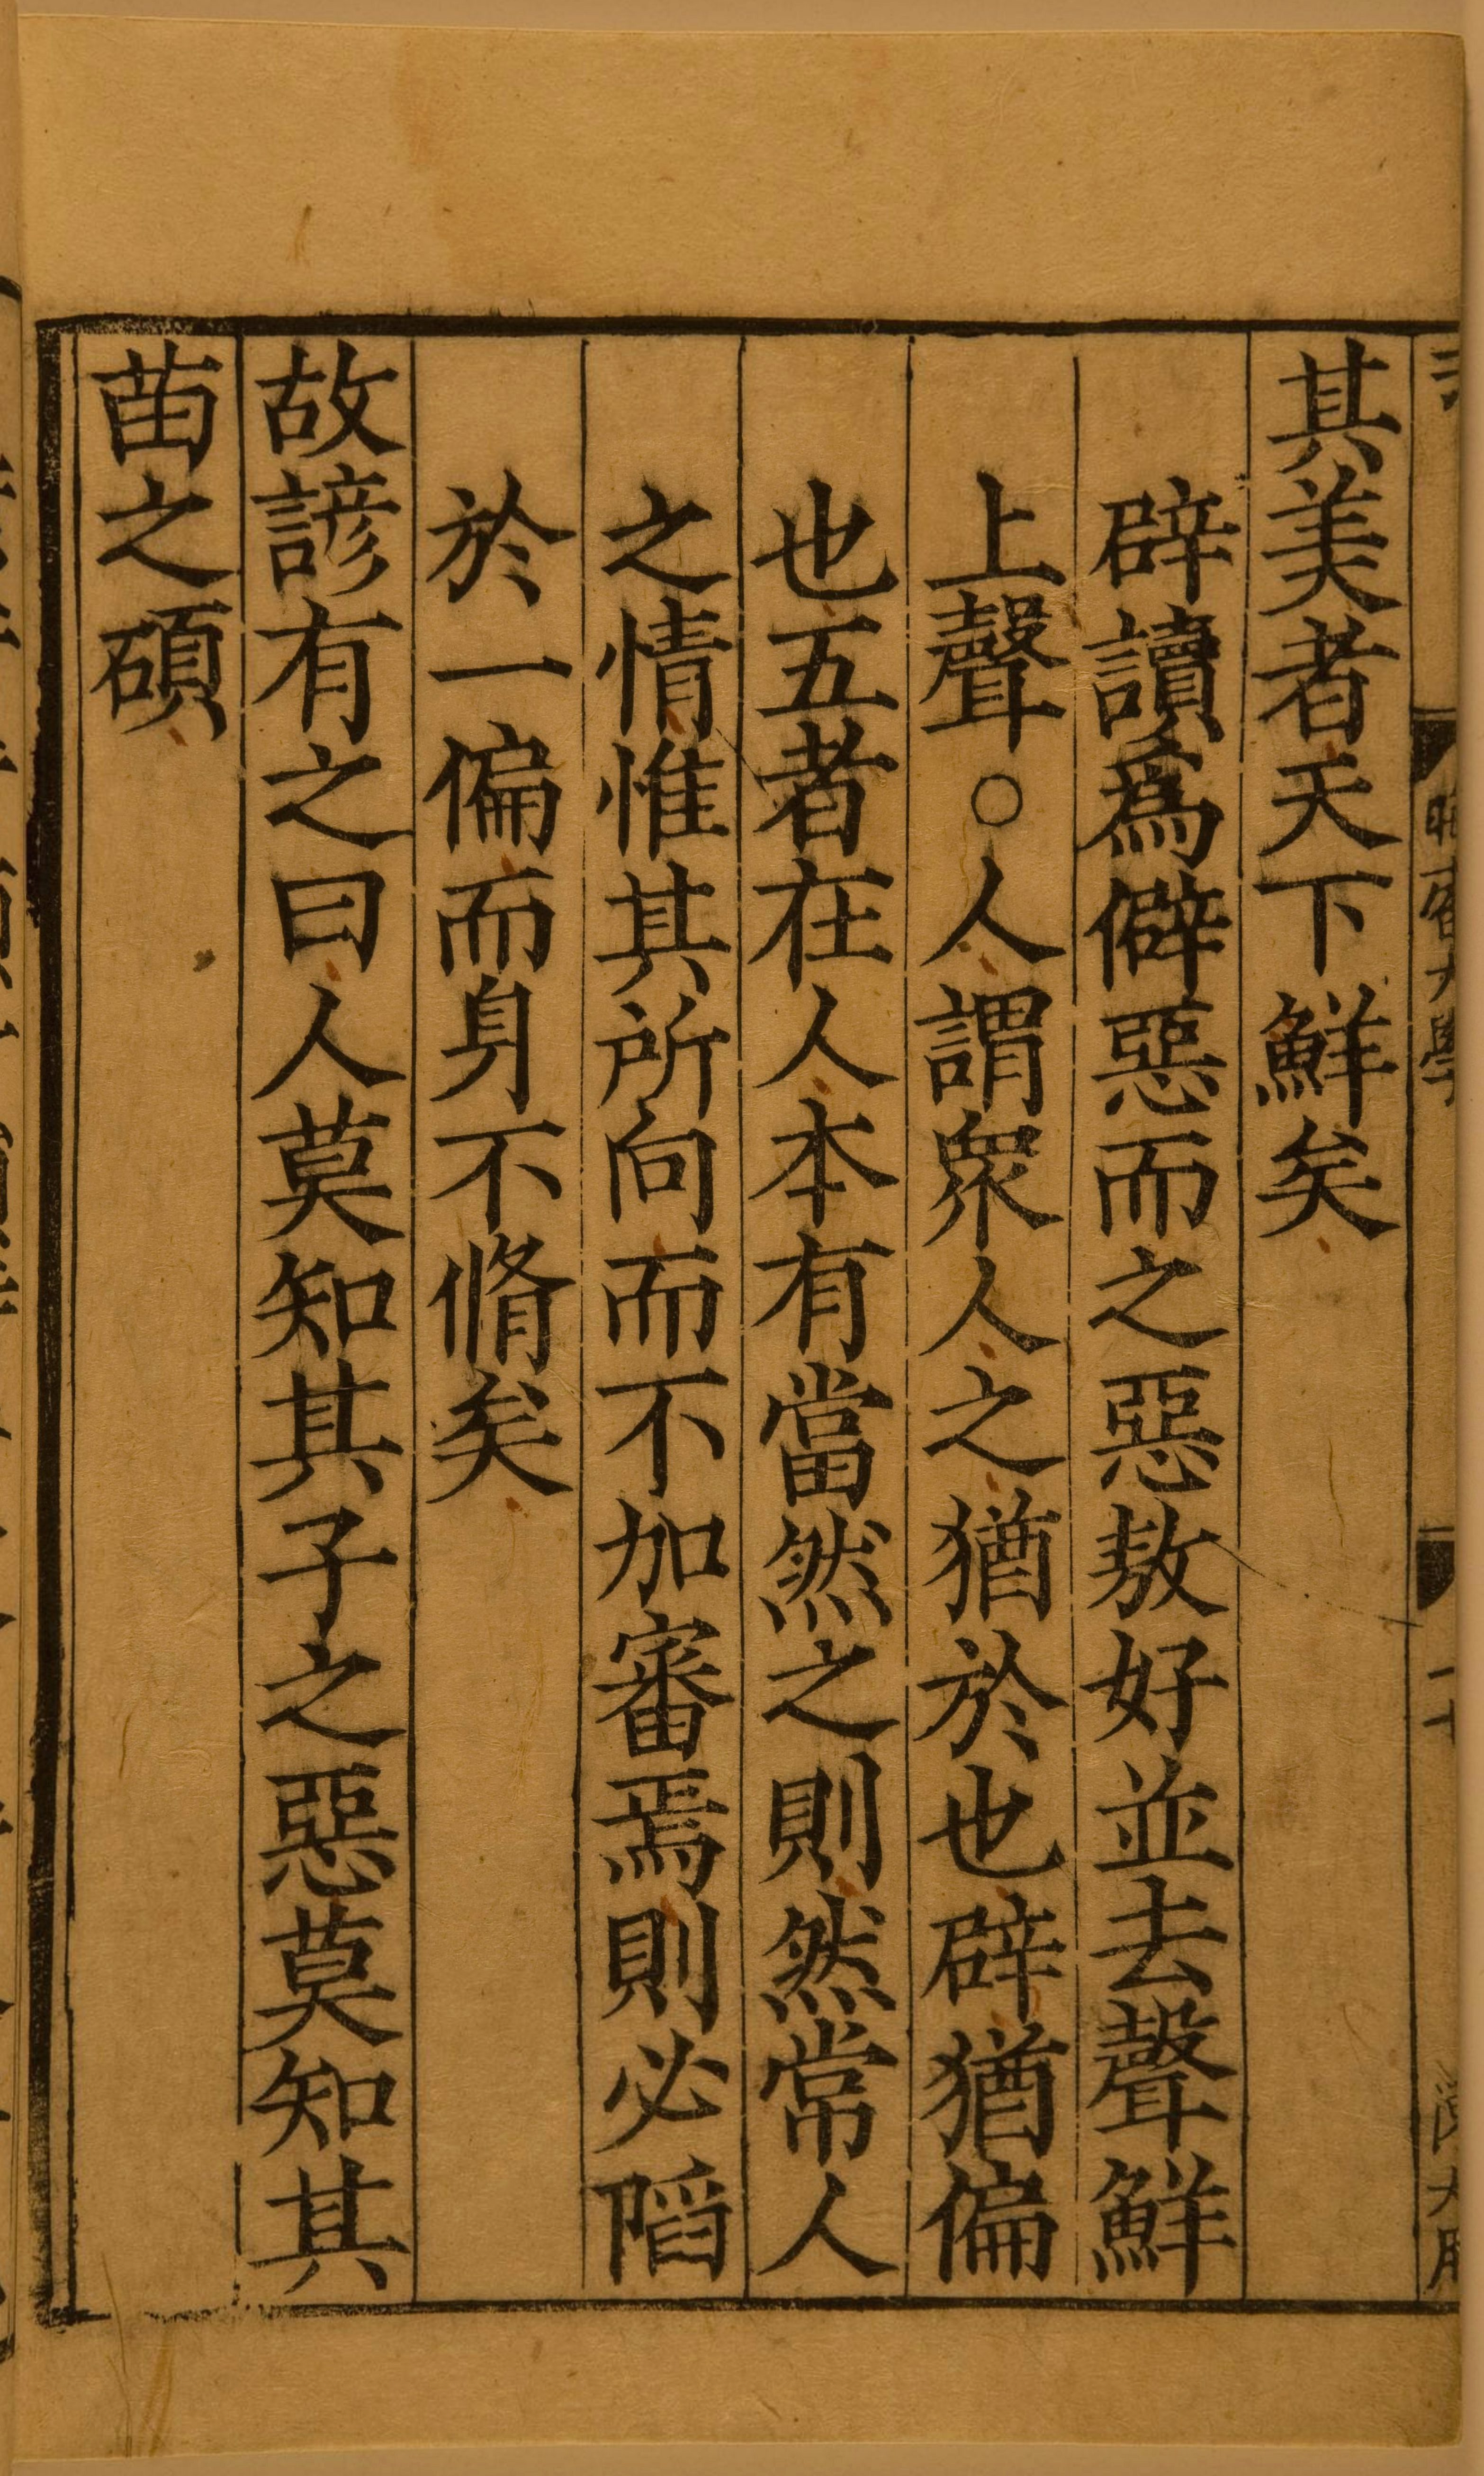 其美者天下鮮矣
辟讀爲僻惡而之惡敖好並去聲鮮
上聲○人謂衆人之猶於也辟猶偏
也五者在人本有當然之則然常人
之情惟其所向而不加審焉則必陷
於一偏而身不脩矣
故諺有之曰人莫知其子之惡莫知其
苗之碩